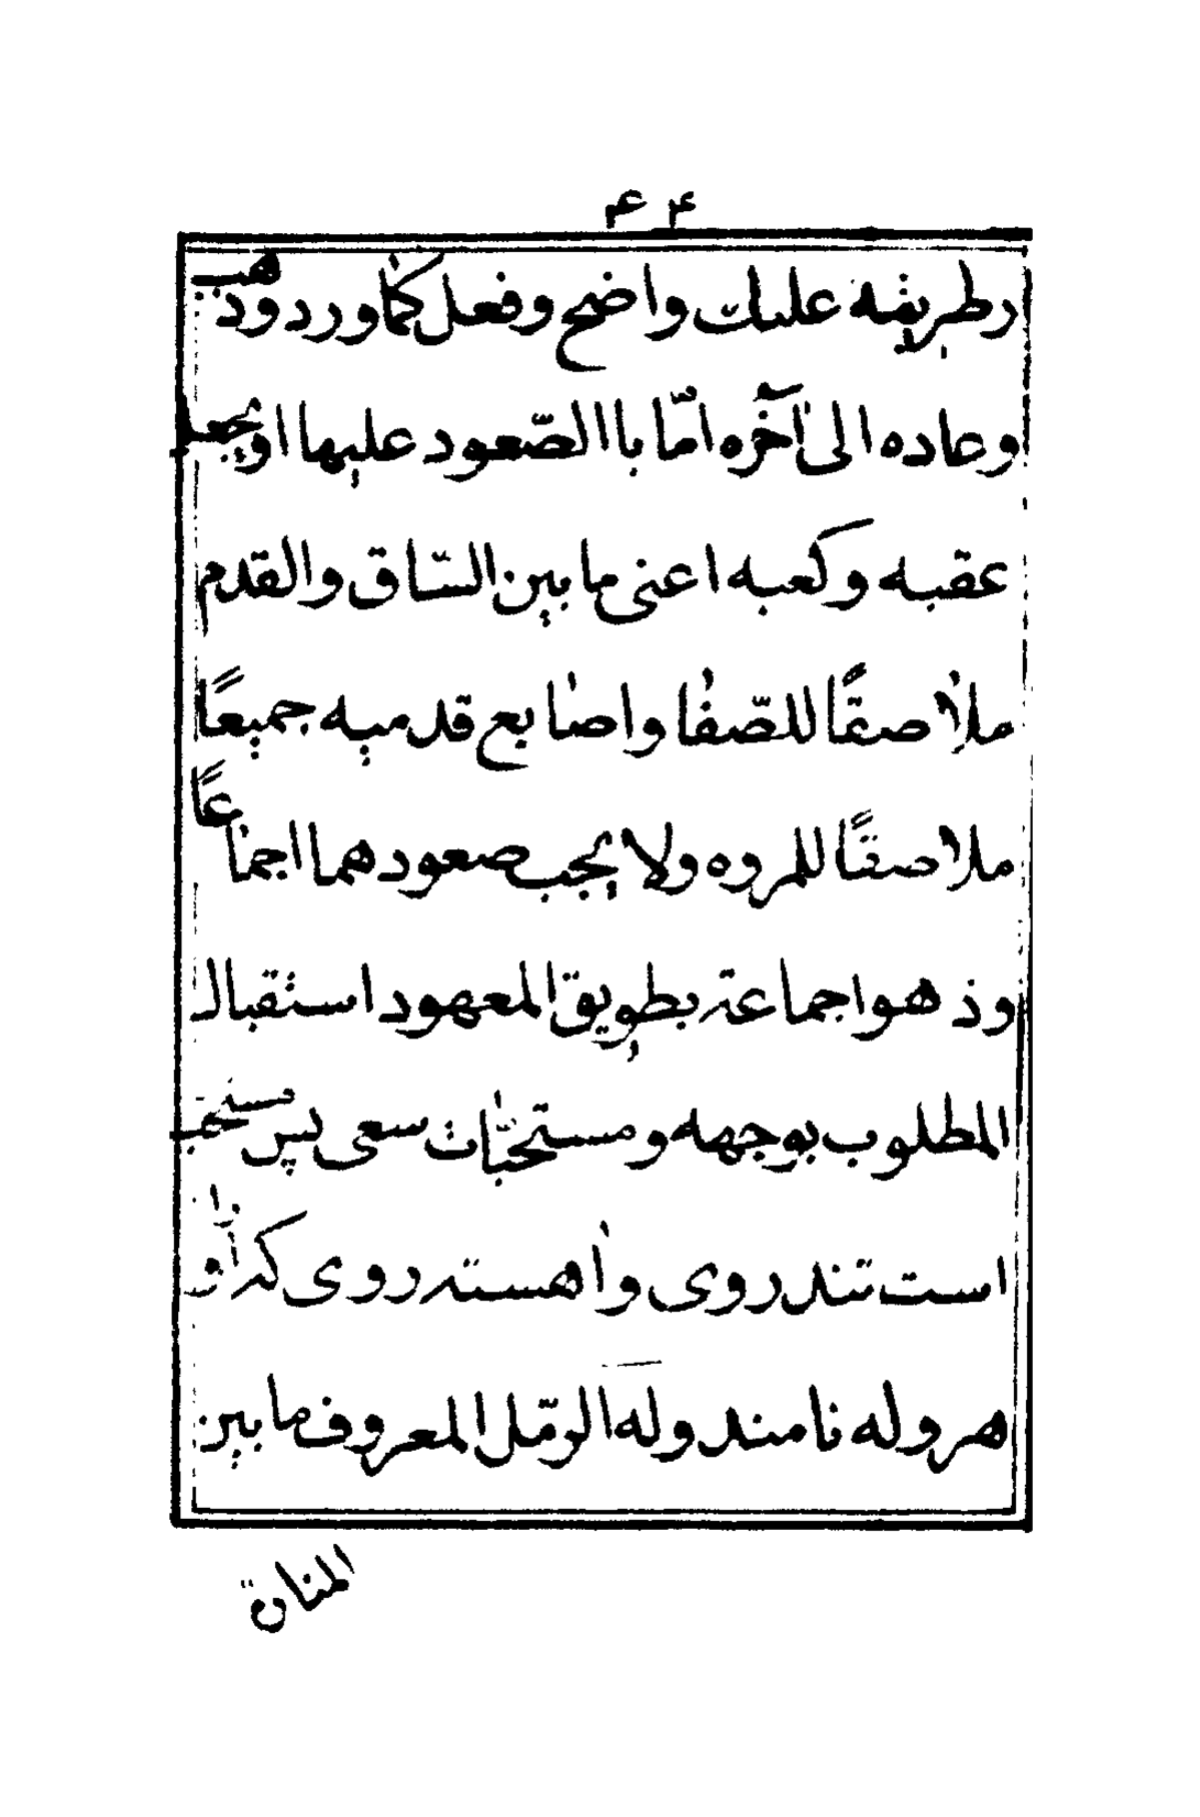 ۴۴
رطریقه علیك واضح وفعل كما ورد وذهب
وعاده الی آخره امّا باالصّعود علیها اویجعل
عقبه وکعبه اعنی ما بین السّاق والقدم
ملاصقًا للصّفا واصابع قدمیه جمیعًا
ملاصقًا للمروه ولا یجب صعودهما اجماعًا
وذهوا جماعة بطریق المعهود استقبال
المطلوب بوجهه و مستحبّات سعی پس مستحب
است تند روی واهسته روی که آنرا
هروله نامند وله الرمّل المعروف ما بین
المنارة